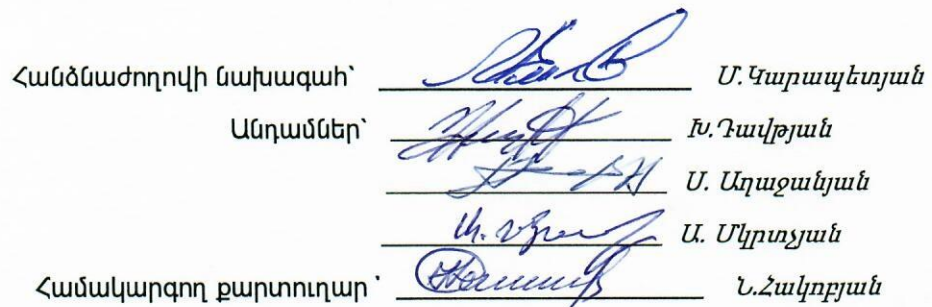 Հանձնաժողովի նախագահ՝ Մ.Կարապետյան
Անդամներ՝ Խ.Դավթյան
Ս. Աղաջանյան
Ա. Մկրտչյան
Համակարգող քարտուղար ՝ Ն.Հակոբյան